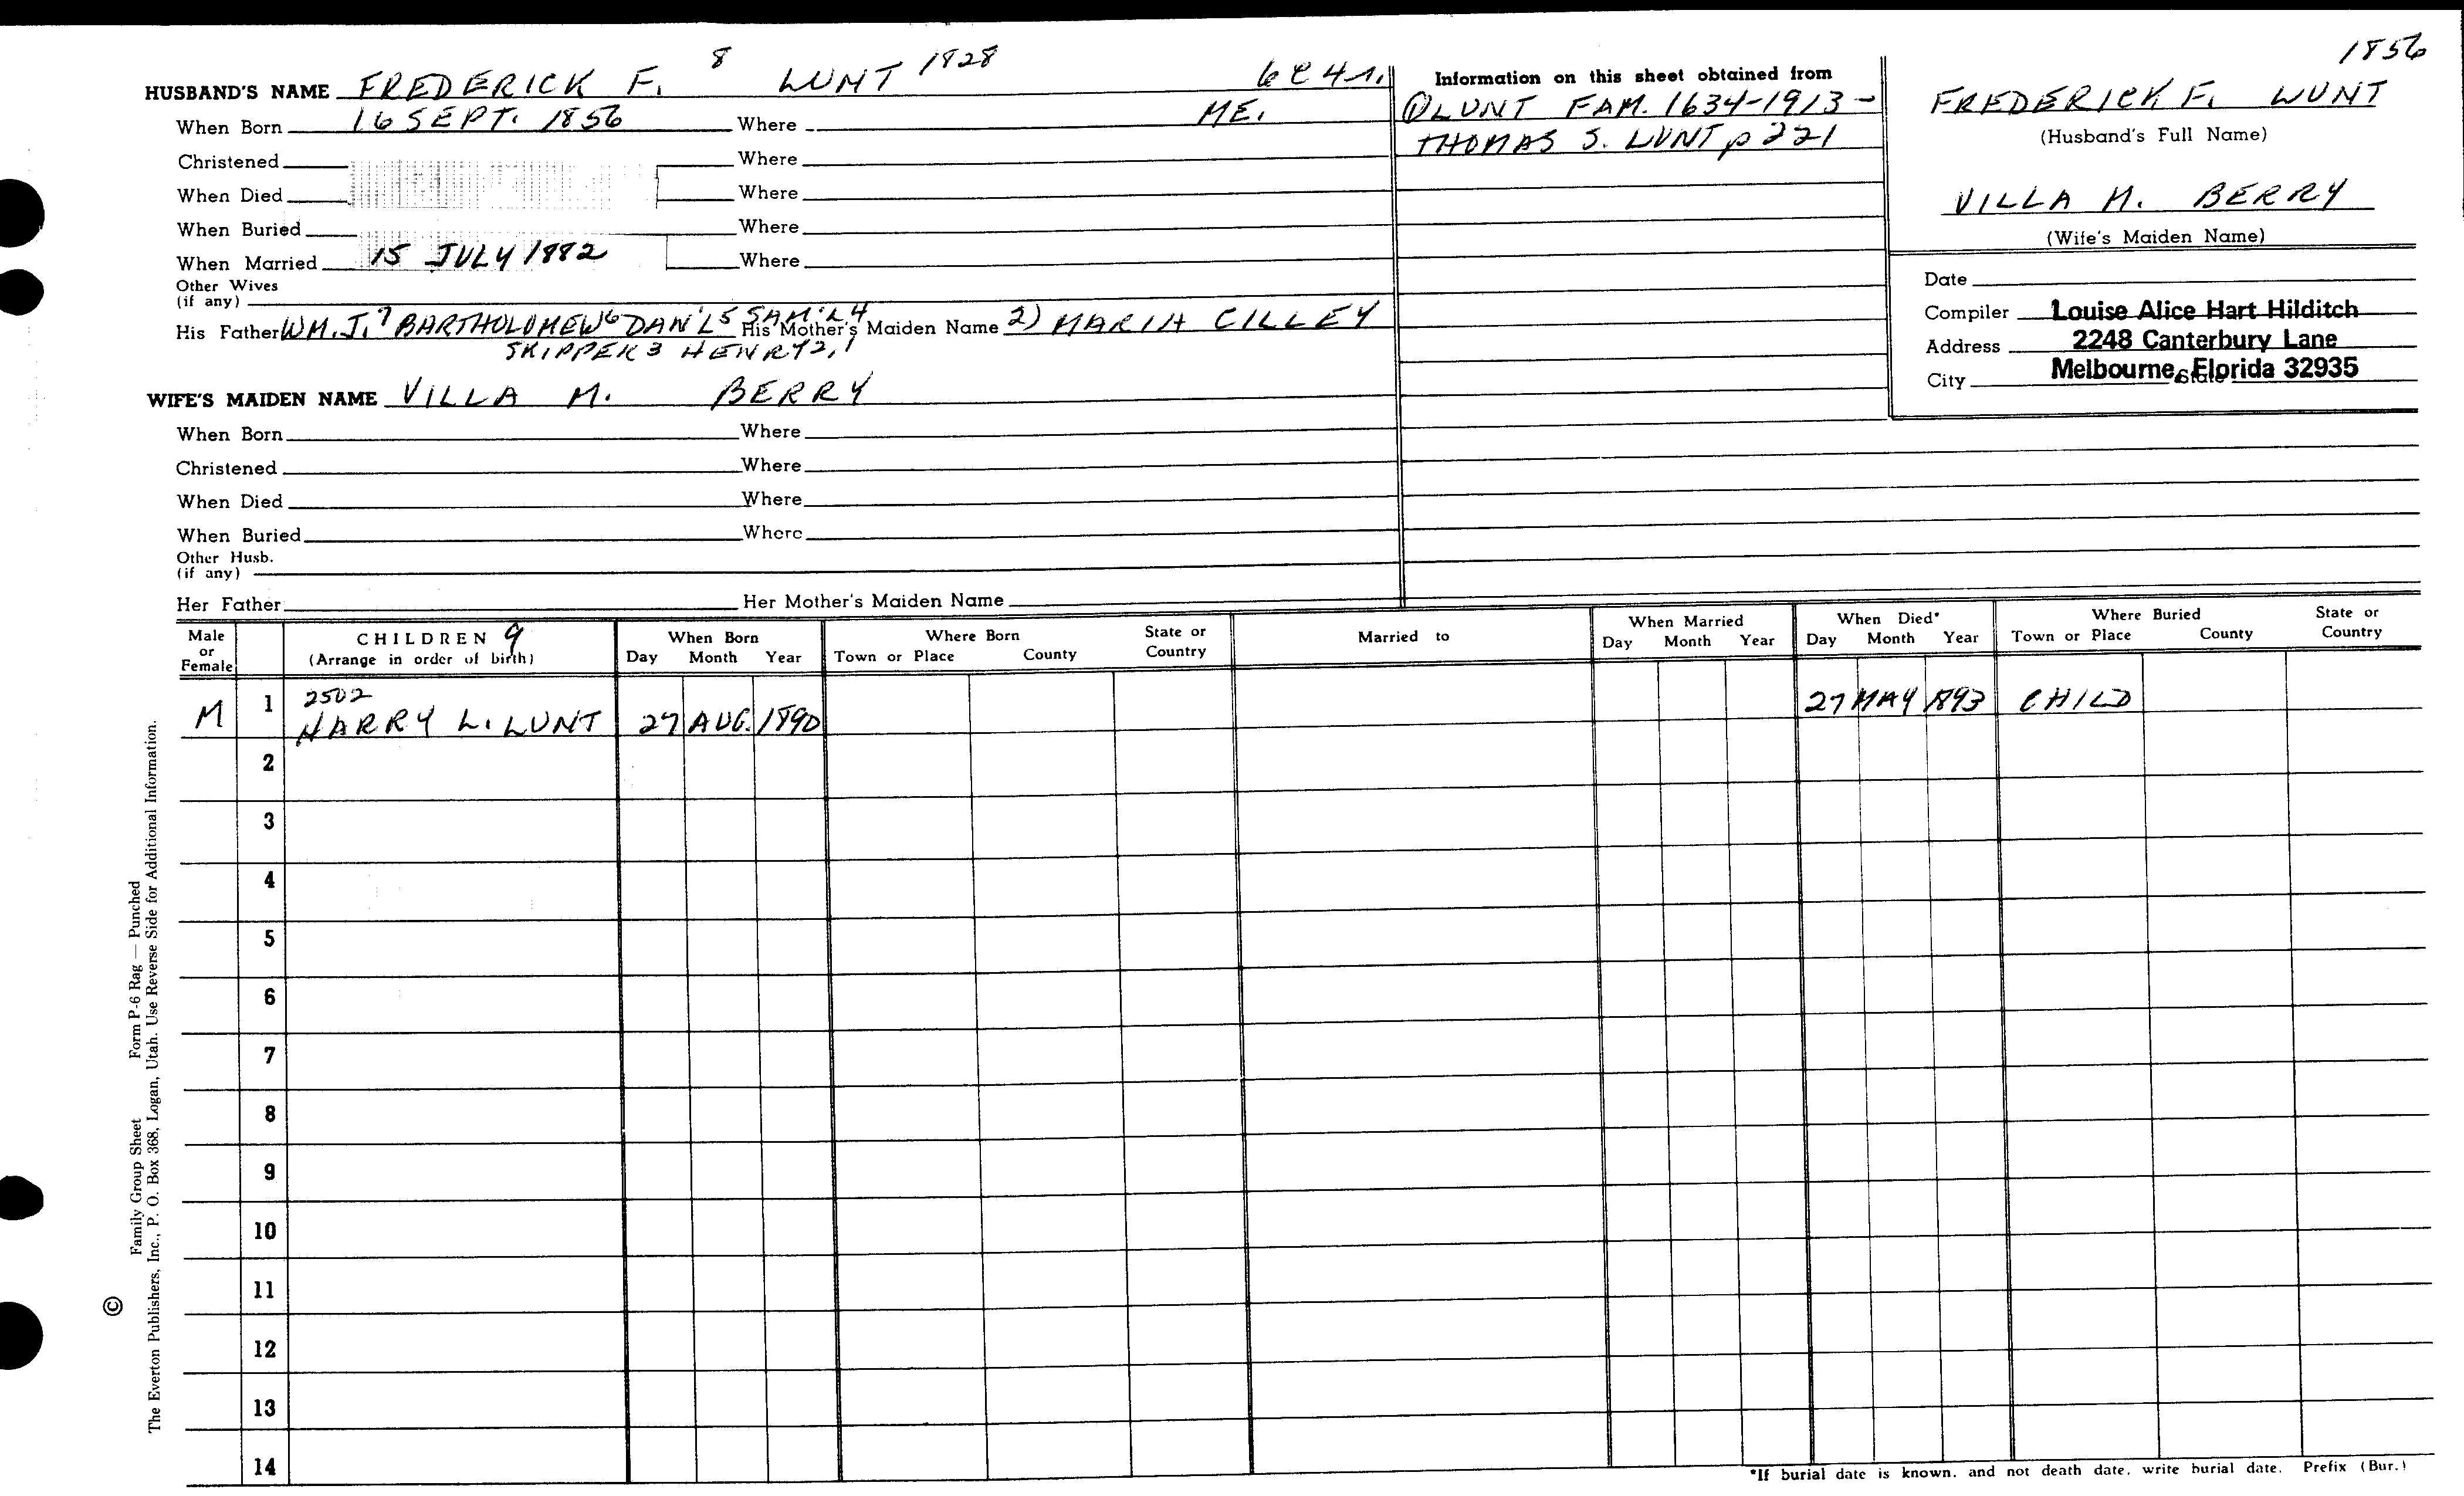 1856
HUSBAND'S NAME FREDERICK F. 8 LUNT 1828
When Born 16 SEPT. 1856 Where ME.
Christened Where
When Died Where
When Buried Where
When Married 15 JULY 1882 Where
Other Wives
(if any)
His Father WM. J.7 BARTHOLOMEW6 DAN'L5 SAM'L4 His Mother's Maiden Name 2) MARIA CILLEY
SKIPPER3 HENRY2,1
WIFE'S MAIDEN NAME VILLA M. BERRY
When Born Where
Christened Where
When Died Where
When Buried Where
Other Husb.
(if any)
Her Father Her Mother's Maiden Name
Information on this sheet obtained from
① LUNT FAM. 1634-1913-
THOMAS S. LUNT p 221
FREDERICK F. LUNT
(Husband's Full Name)
VILLA M. BERRY
(Wife's Maiden Name)
Date
Compiler Louise Alice Hart Hilditch
Address 2248 Canterbury Lane
City Melbourne, Florida 32935 State
Male or Female CHILDREN 9 (Arrange in order of birth) When Born Day Month Year Where Born Town or Place County State or Country Married to When Married Day Month Year When Died* Day Month Year Where Buried Town or Place County State or Country
2502
M 1 HARRY L. LUNT 27 AUG. 1890 27 MAY 1893 CHILD
2
3
4
5
6
7
8
9
10
11
12
13
14
*If burial date is known, and not death date, write burial date. Prefix (Bur.)
© Family Group Sheet Form P-6 Rag — Punched
The Everton Publishers, Inc., P. O. Box 368, Logan, Utah. Use Reverse Side for Additional Information.